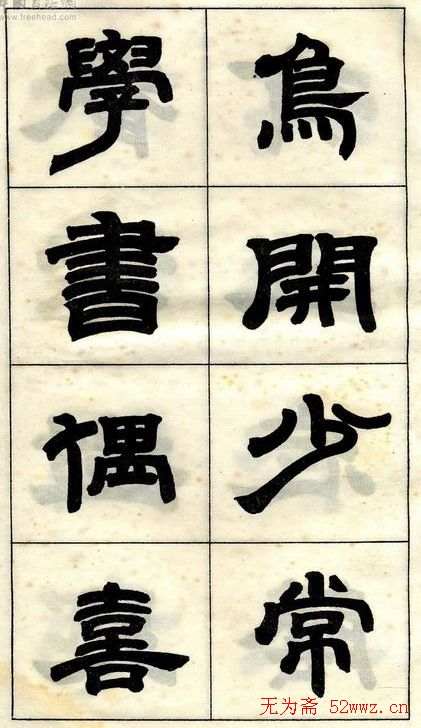 www.freehead.com
鳥開少常
學書偶喜
无为斋 52wwz.cn